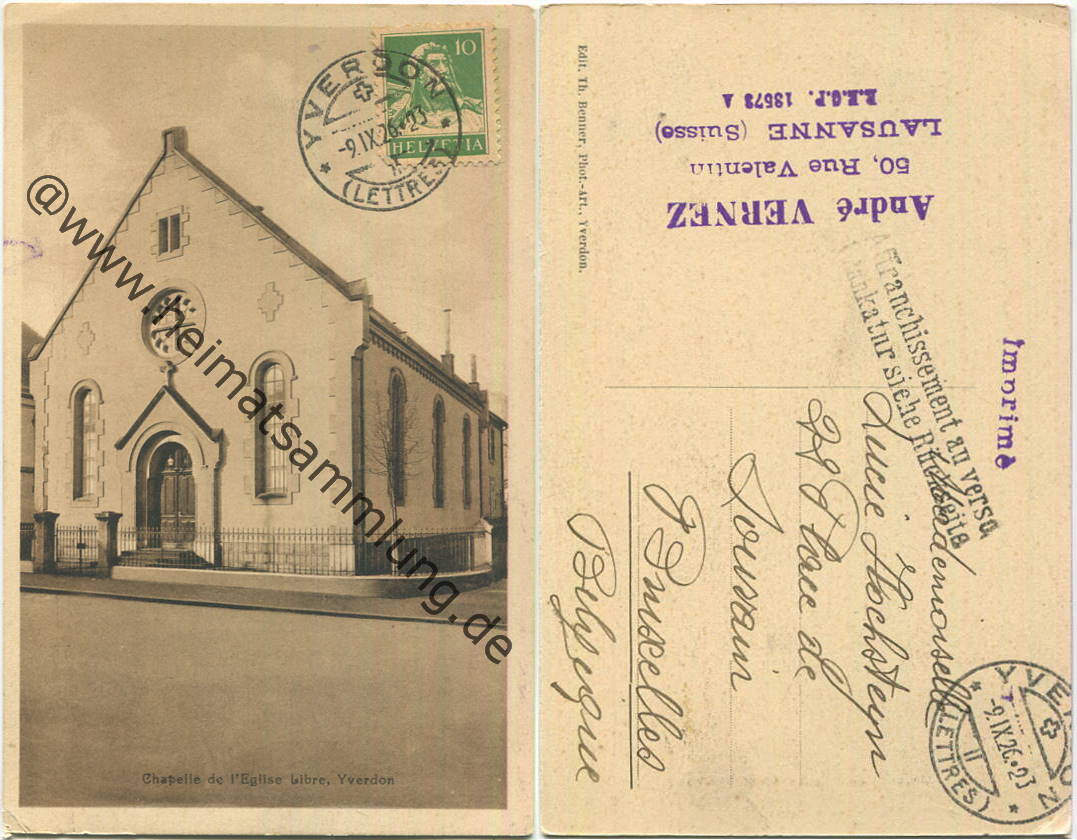 10
HELVETIA
YVERDON
-9.IX.26.-23
(LETTRES)
@www.heimatsammlung.de
Chapelle de l'Eglise Libre, Yverdon
Edit. Th. Benner, Phot.-Art., Yverdon.
André VERNEZ
50, Rue Valentin
LAUSANNE (Suisse)
R.E.G.P. 13573 A
Affranchissement au verso
Frankatur siehe Rückseite
Imprimé
Mademoiselle
Lucie Hochsteyn
Place de
Louvain
Bruxelles
Belgique
YVERDON
-9.IX.26.-23
II
(LETTRES)